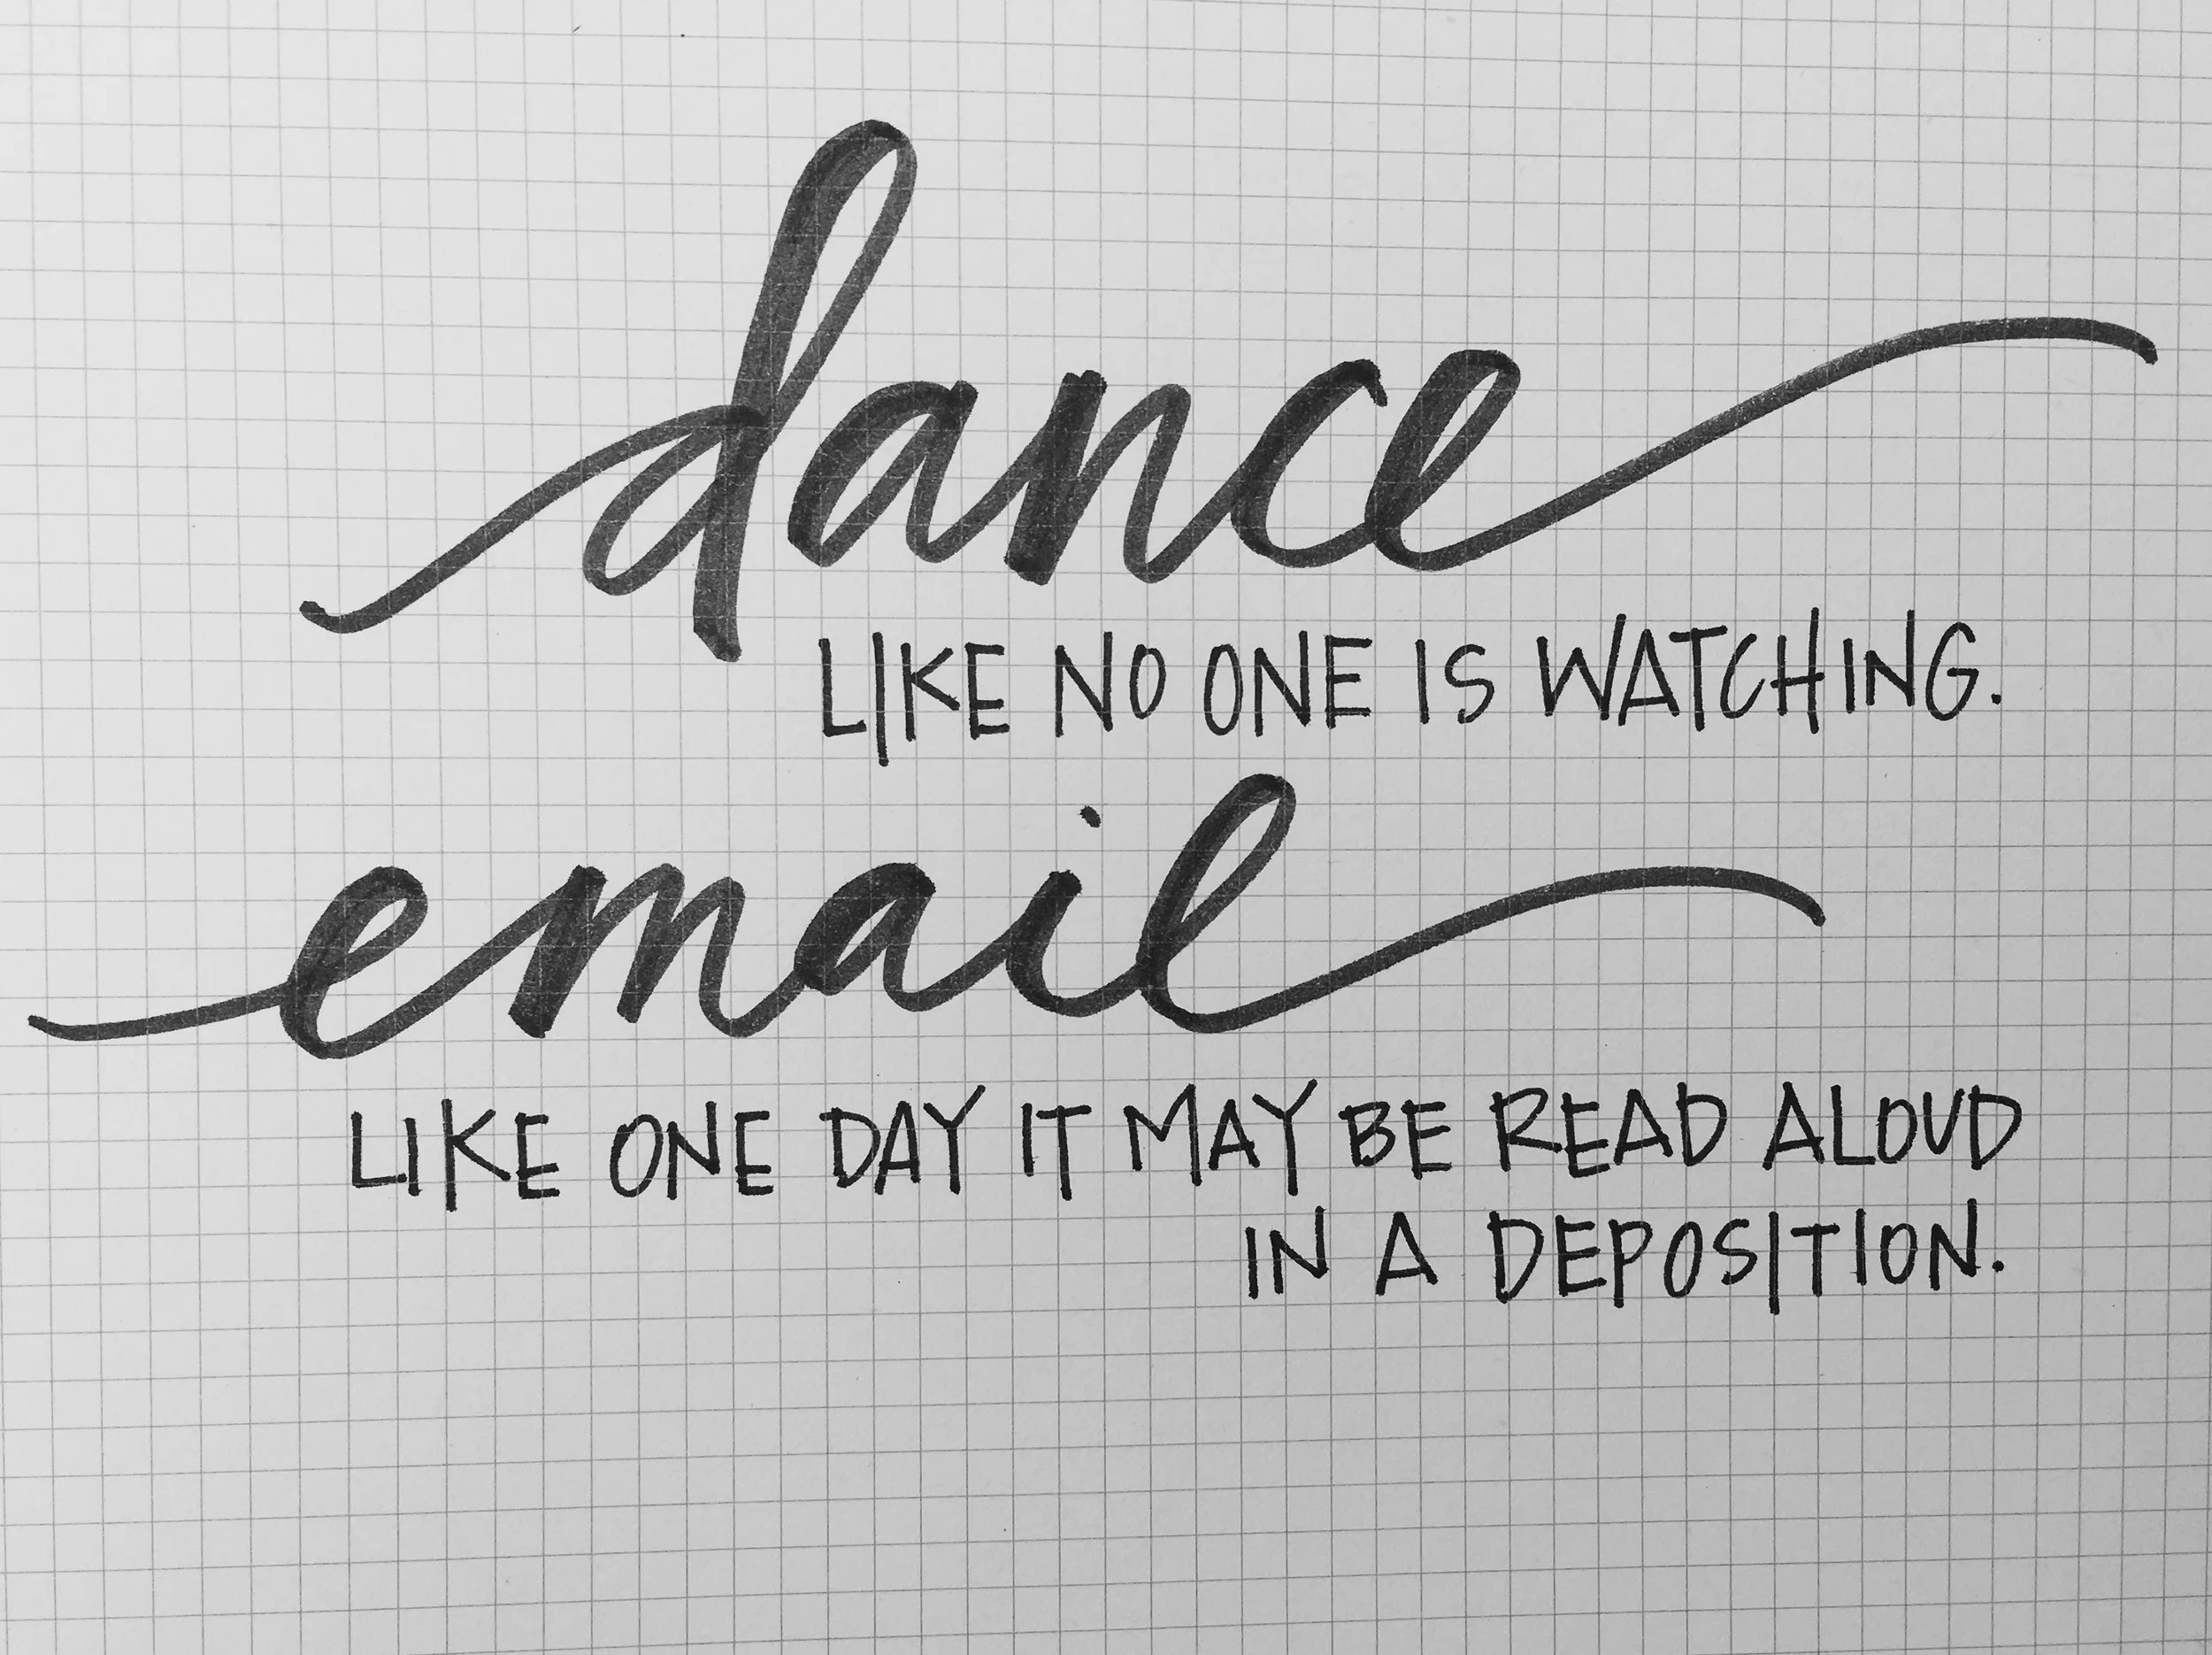 dance
LIKE NO ONE IS WATCHING.
email
LIKE ONE DAY IT MAY BE READ ALOUD
IN A DEPOSITION.